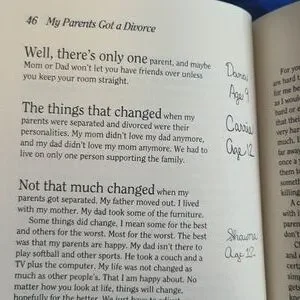 46 My Parents Got a Divorce
Well, there's only one parent, and maybe
Mom or Dad won't let you have friends over unless
you keep your room straight.
Dana
Age 9
The things that changed when my
parents were separated and divorced were their
personalities. My mom didn't like my dad anymore,
and my dad didn't like my mom anymore. We had to
live on only one person supporting the family.
Carrie
Age 12
Not that much changed when my
parents got separated. My father moved out. I lived
with my mother. My dad took some of the furniture.
Some things did change. I mean some for the best
and others for the worst. Most for the worst. The best
was that my parents are happy. My dad isn't there to
play softball and other sports. He took a couch and a
TV plus the computer. My life was not changed as
much as other people's. That I am happy about. No
matter how you look at life, things will change,
hopefully for the better. We just have to adjust
Shauna
Age 12
For you
are hard f
for me be
are hard
very har
much. I
far away
once a